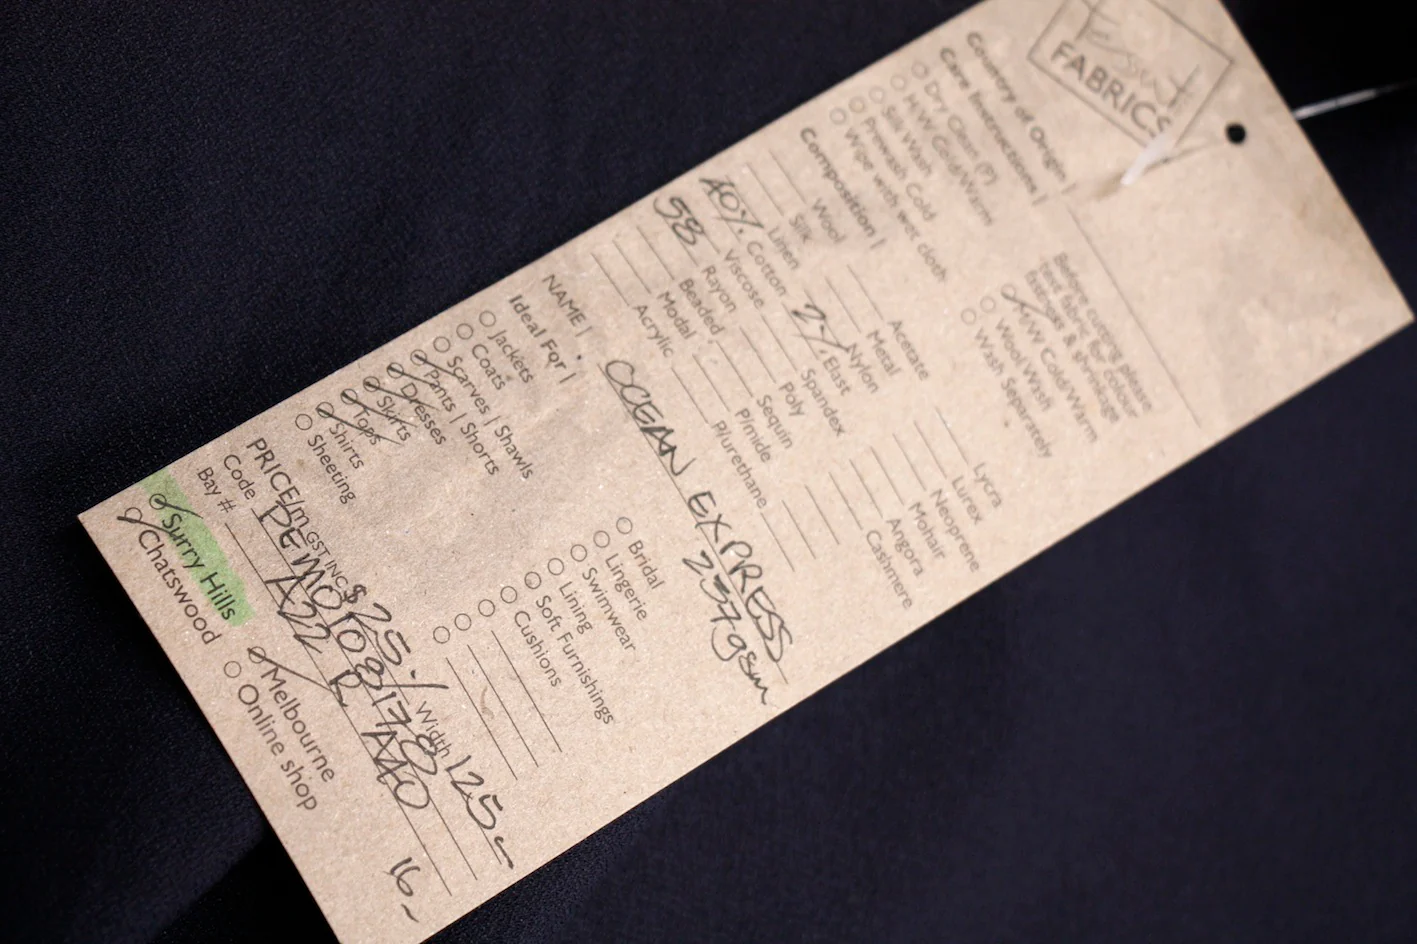 FABRICS
Country of Origin |
Care Instructions |
Dry Clean (P)
H/W Cold/Warm
Silk Wash
Prewash Cold
Wipe with wet cloth
Before cutting please
test fabric for colour
fastness & shrinkage
M/W Cold/Warm
Wool Wash
Wash Separately
Composition |
Wool
Silk
Linen
40% Cotton
58 Viscose
Rayon
Beaded
Modal
Acrylic
Acetate
Metal
Nylon
2% Elast
Spandex
Poly
Sequin
P/mide
P/urethane
Lycra
Lurex
Neoprene
Mohair
Angora
Cashmere
NAME | OCEAN EXPRESS
237gsm
Ideal For |
Jackets
Coats
Scarves | Shawls
Pants | Shorts
Dresses
Skirts
Tops
Shirts
Sheeting
Bridal
Lingerie
Swimwear
Lining
Soft Furnishings
Cushions
PRICE/m GST INC $25.- Width 125
Code DEMO108178
Bay # A22 R A40 16
Surry Hills
Chatswood
Melbourne
Online shop